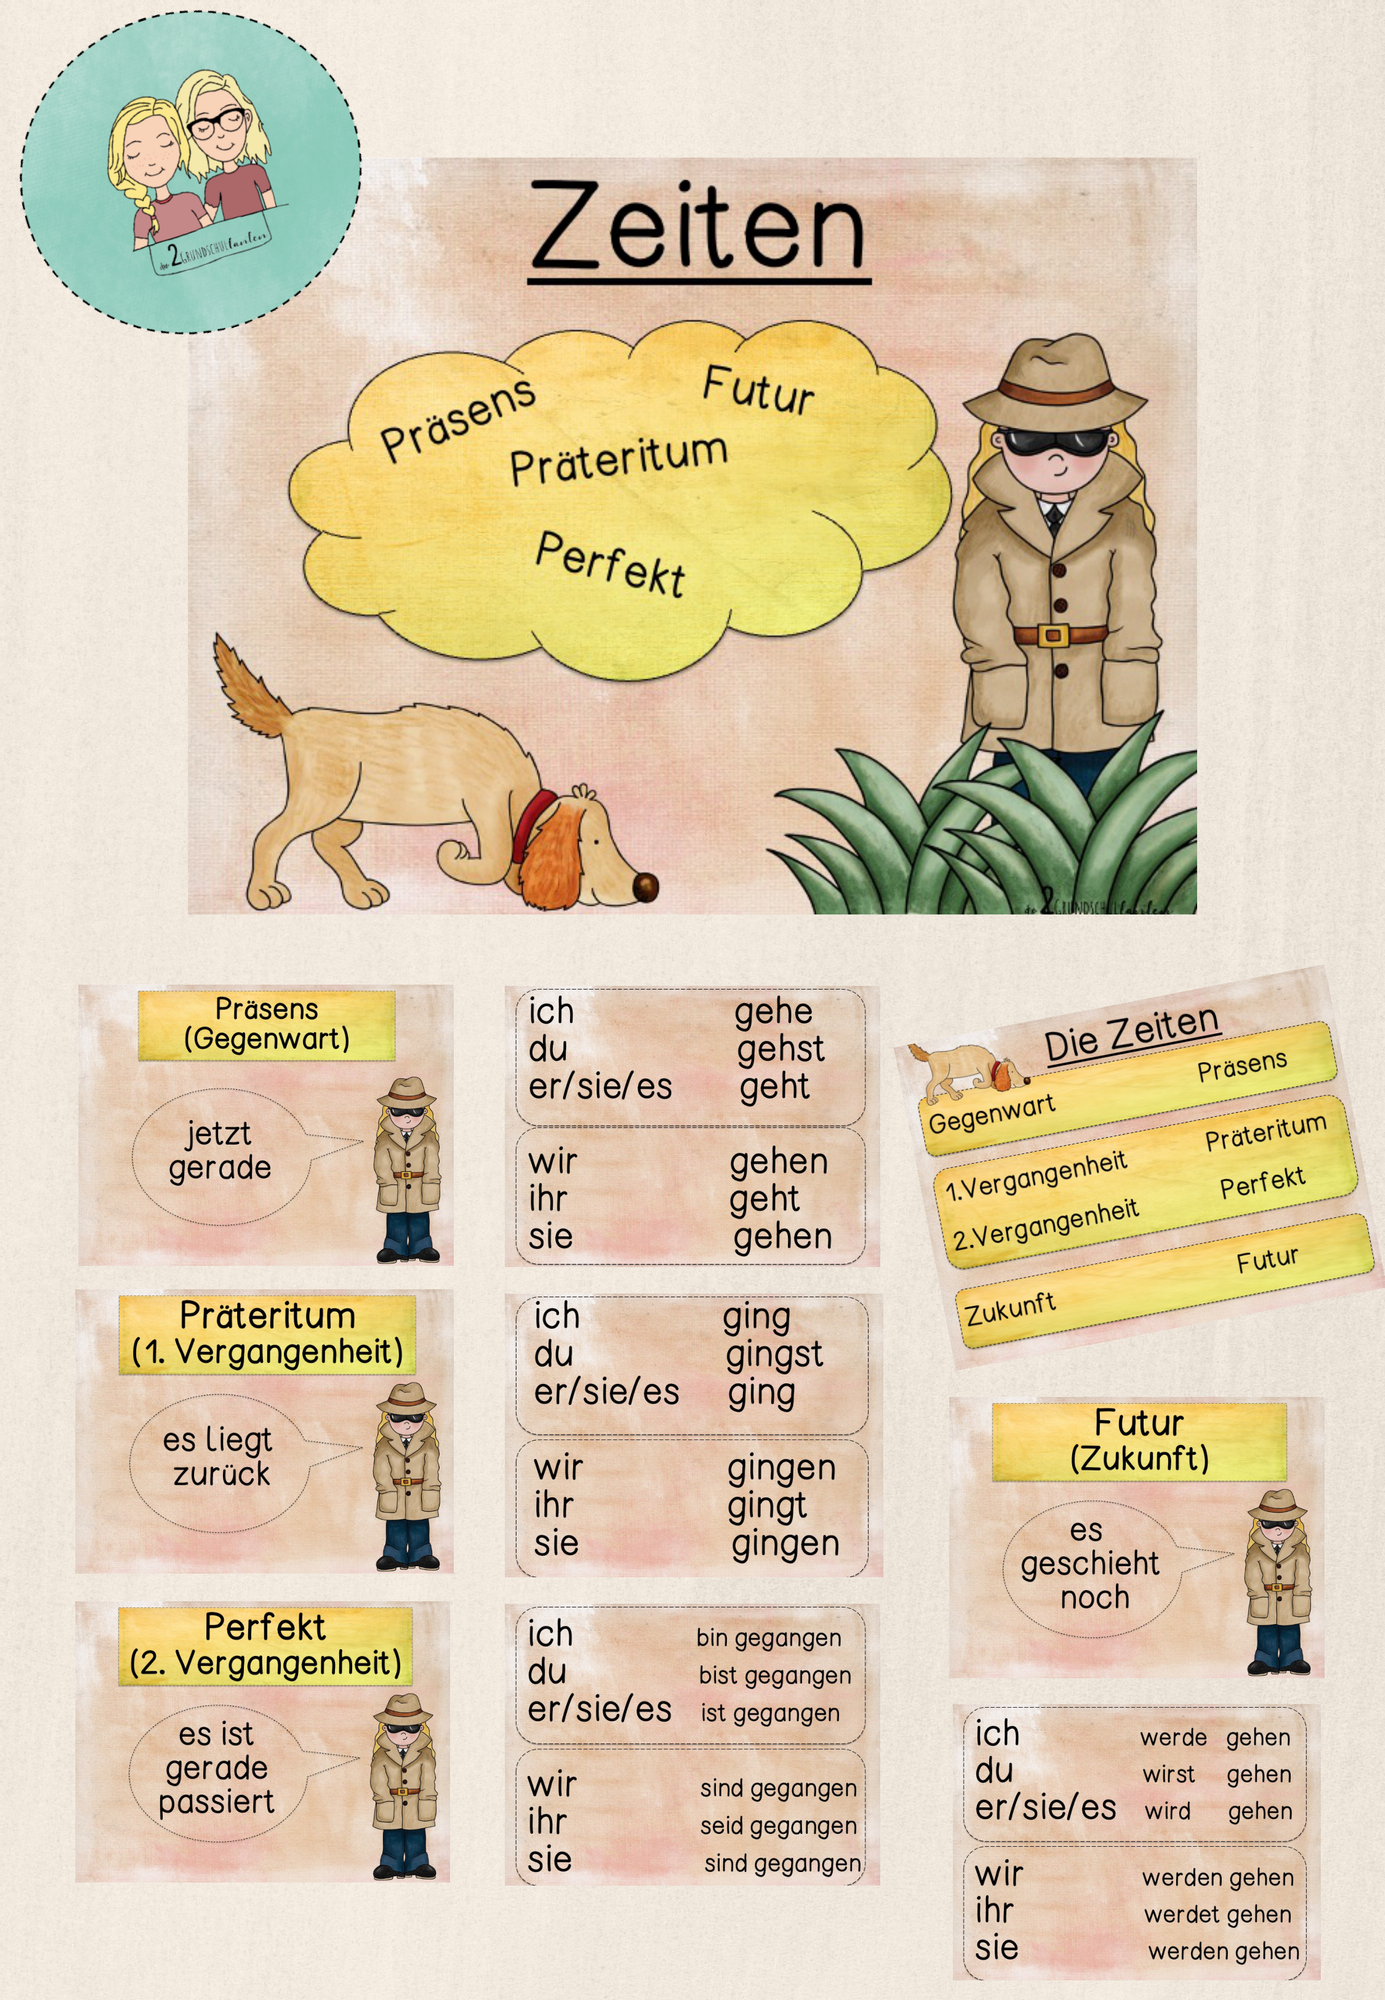 die 2 GRUNDSCHULtanten
Zeiten
Präsens
Futur
Präteritum
Perfekt
die 2 GRUNDSCHULtanten
Präsens
(Gegenwart)
jetzt
gerade
ich gehe
du gehst
er/sie/es geht
wir gehen
ihr geht
sie gehen
Die Zeiten
Gegenwart Präsens
1.Vergangenheit Präteritum
2.Vergangenheit Perfekt
Zukunft Futur
Präteritum
(1. Vergangenheit)
es liegt
zurück
ich ging
du gingst
er/sie/es ging
wir gingen
ihr gingt
sie gingen
Perfekt
(2. Vergangenheit)
es ist
gerade
passiert
ich bin gegangen
du bist gegangen
er/sie/es ist gegangen
wir sind gegangen
ihr seid gegangen
sie sind gegangen
Futur
(Zukunft)
es
geschieht
noch
ich werde gehen
du wirst gehen
er/sie/es wird gehen
wir werden gehen
ihr werdet gehen
sie werden gehen